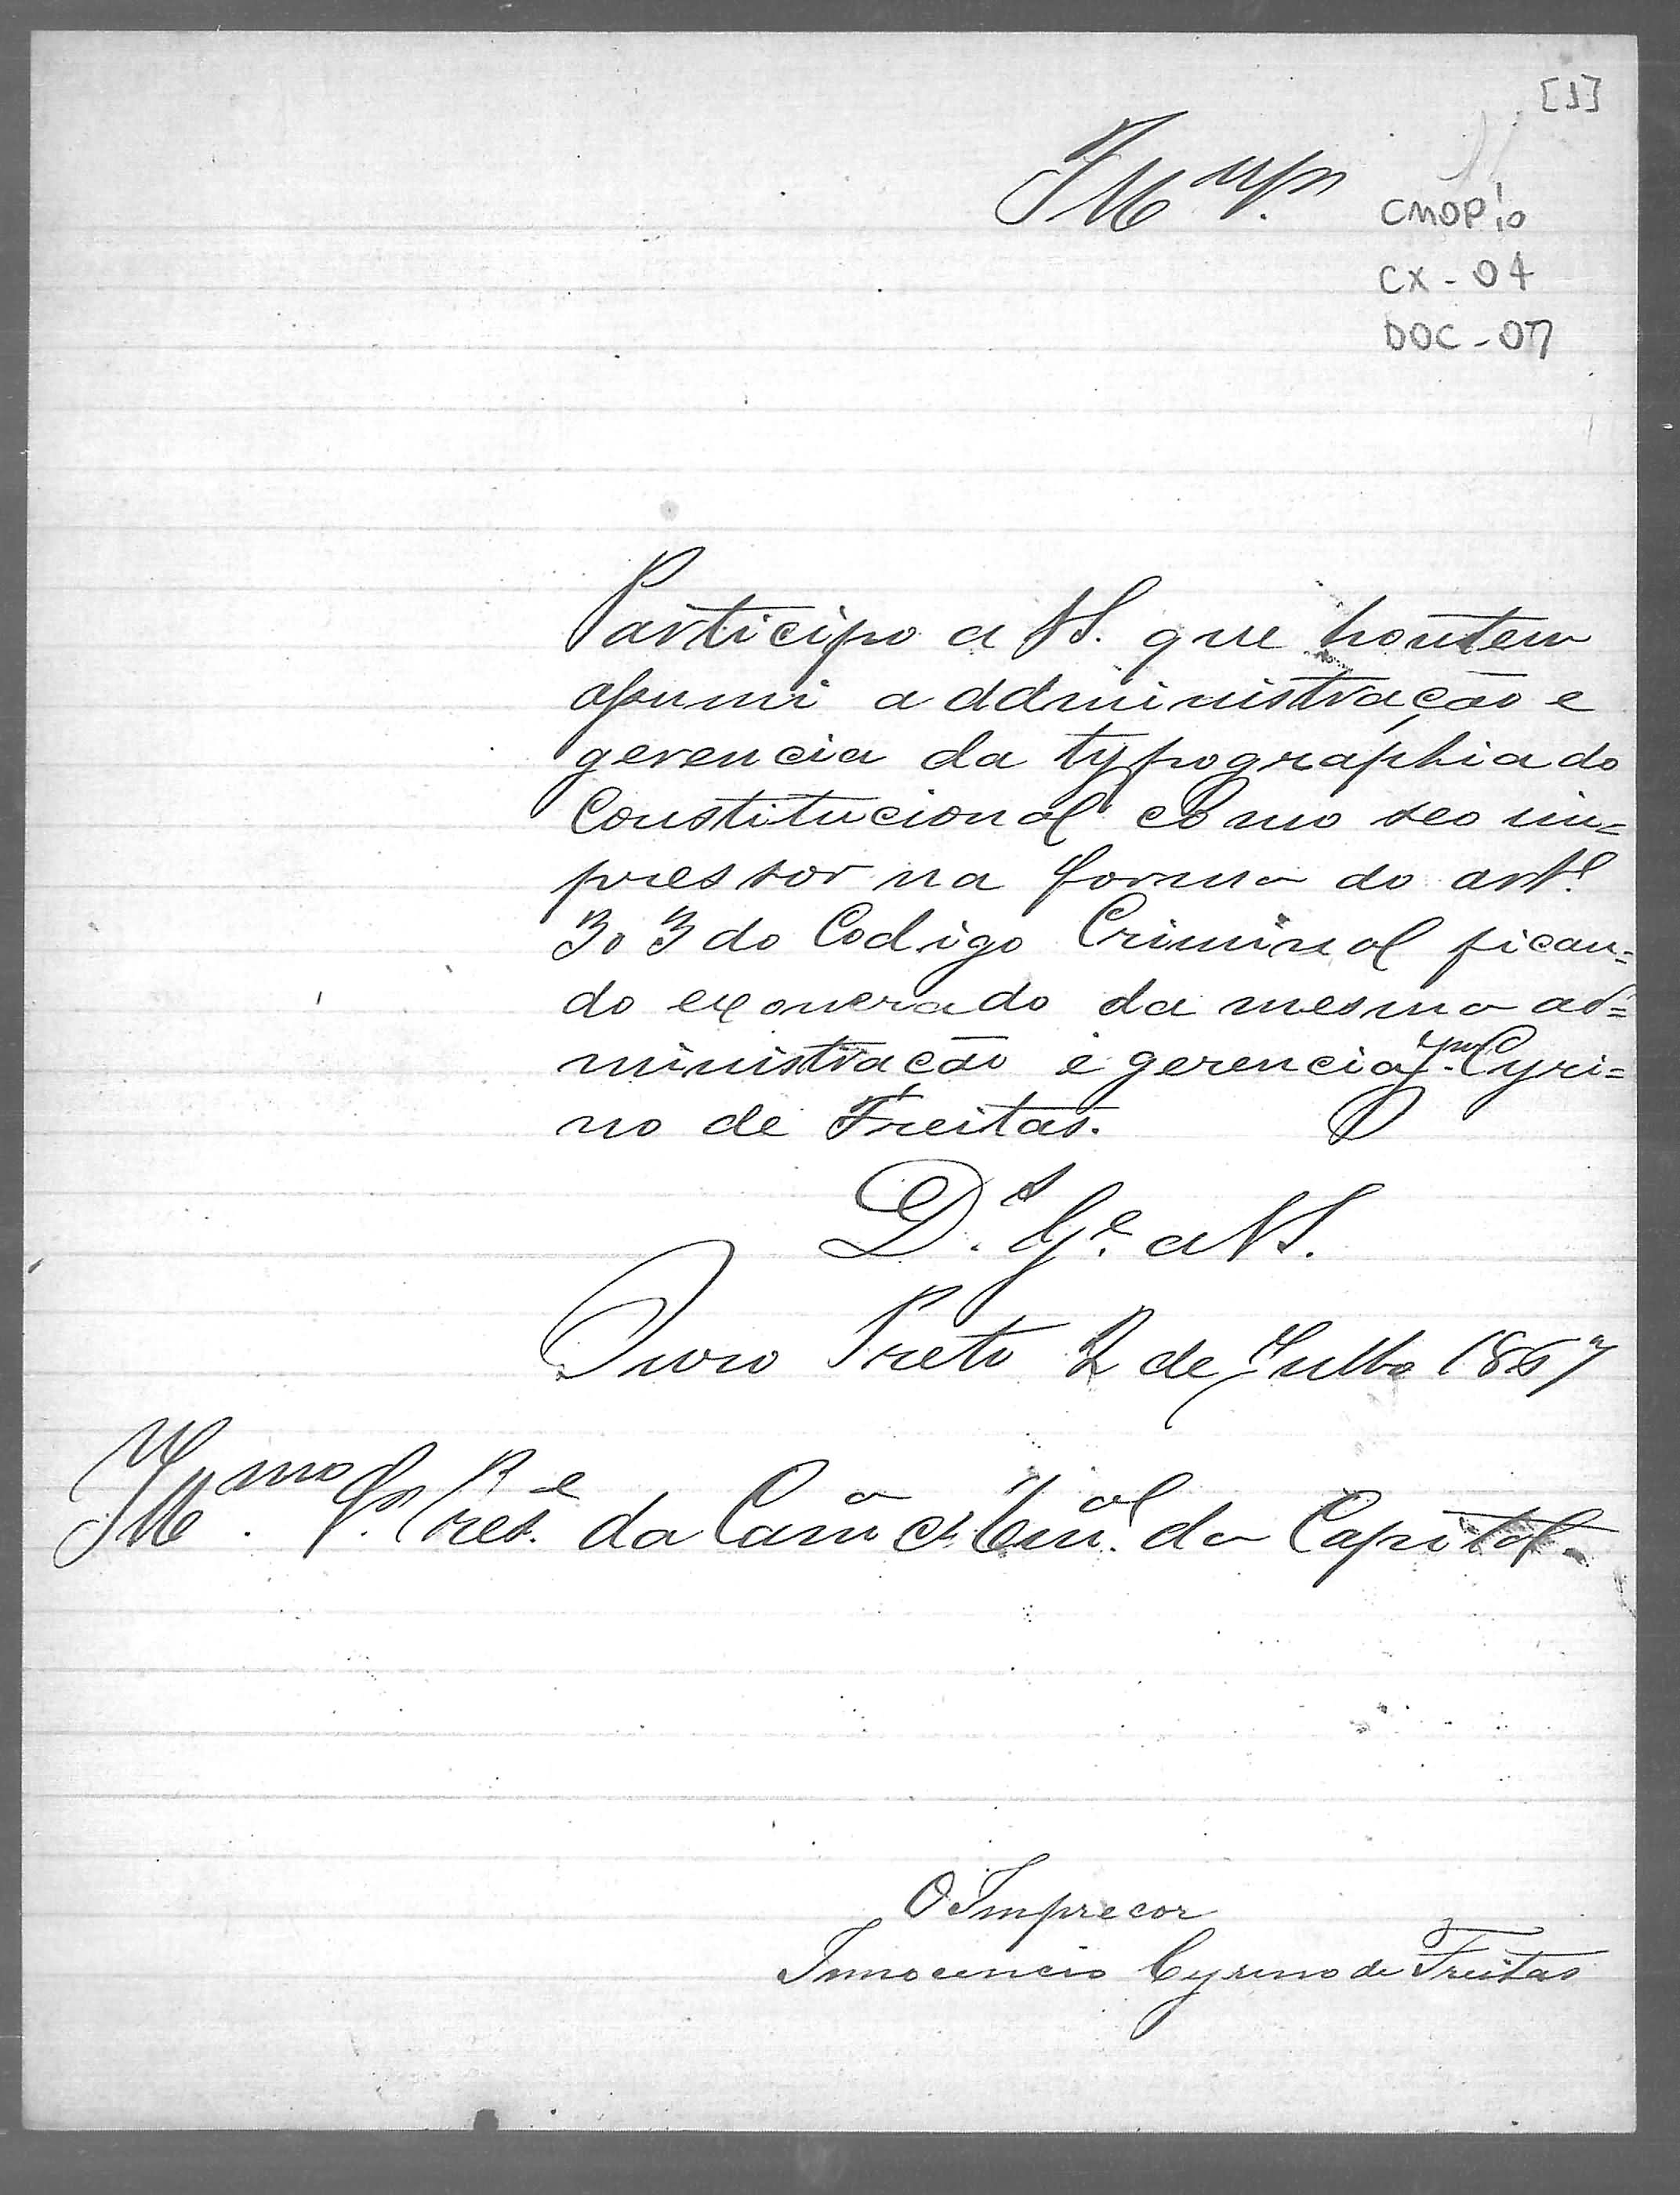 [1]
Illmo Sr.
CMOP 10
CX - 04
DOC - 07
Participo a V.S. que hontem
assumi a addministração e
gerencia da typographia do
Constitucional como seo im=
pressor na forma do artº
303 do Codigo Criminal fican=
do exonerado da mesma ad=
ministração e gerencia Cyri=
no de Freitas.
D.s G.e a V.S.
Ouro Preto 2 de Julho 1867
Illmo. Sr. Pres.e da Camᵃ Mun.al da Capital.
O Imprecor
Innocencio Cyrino de Freitas